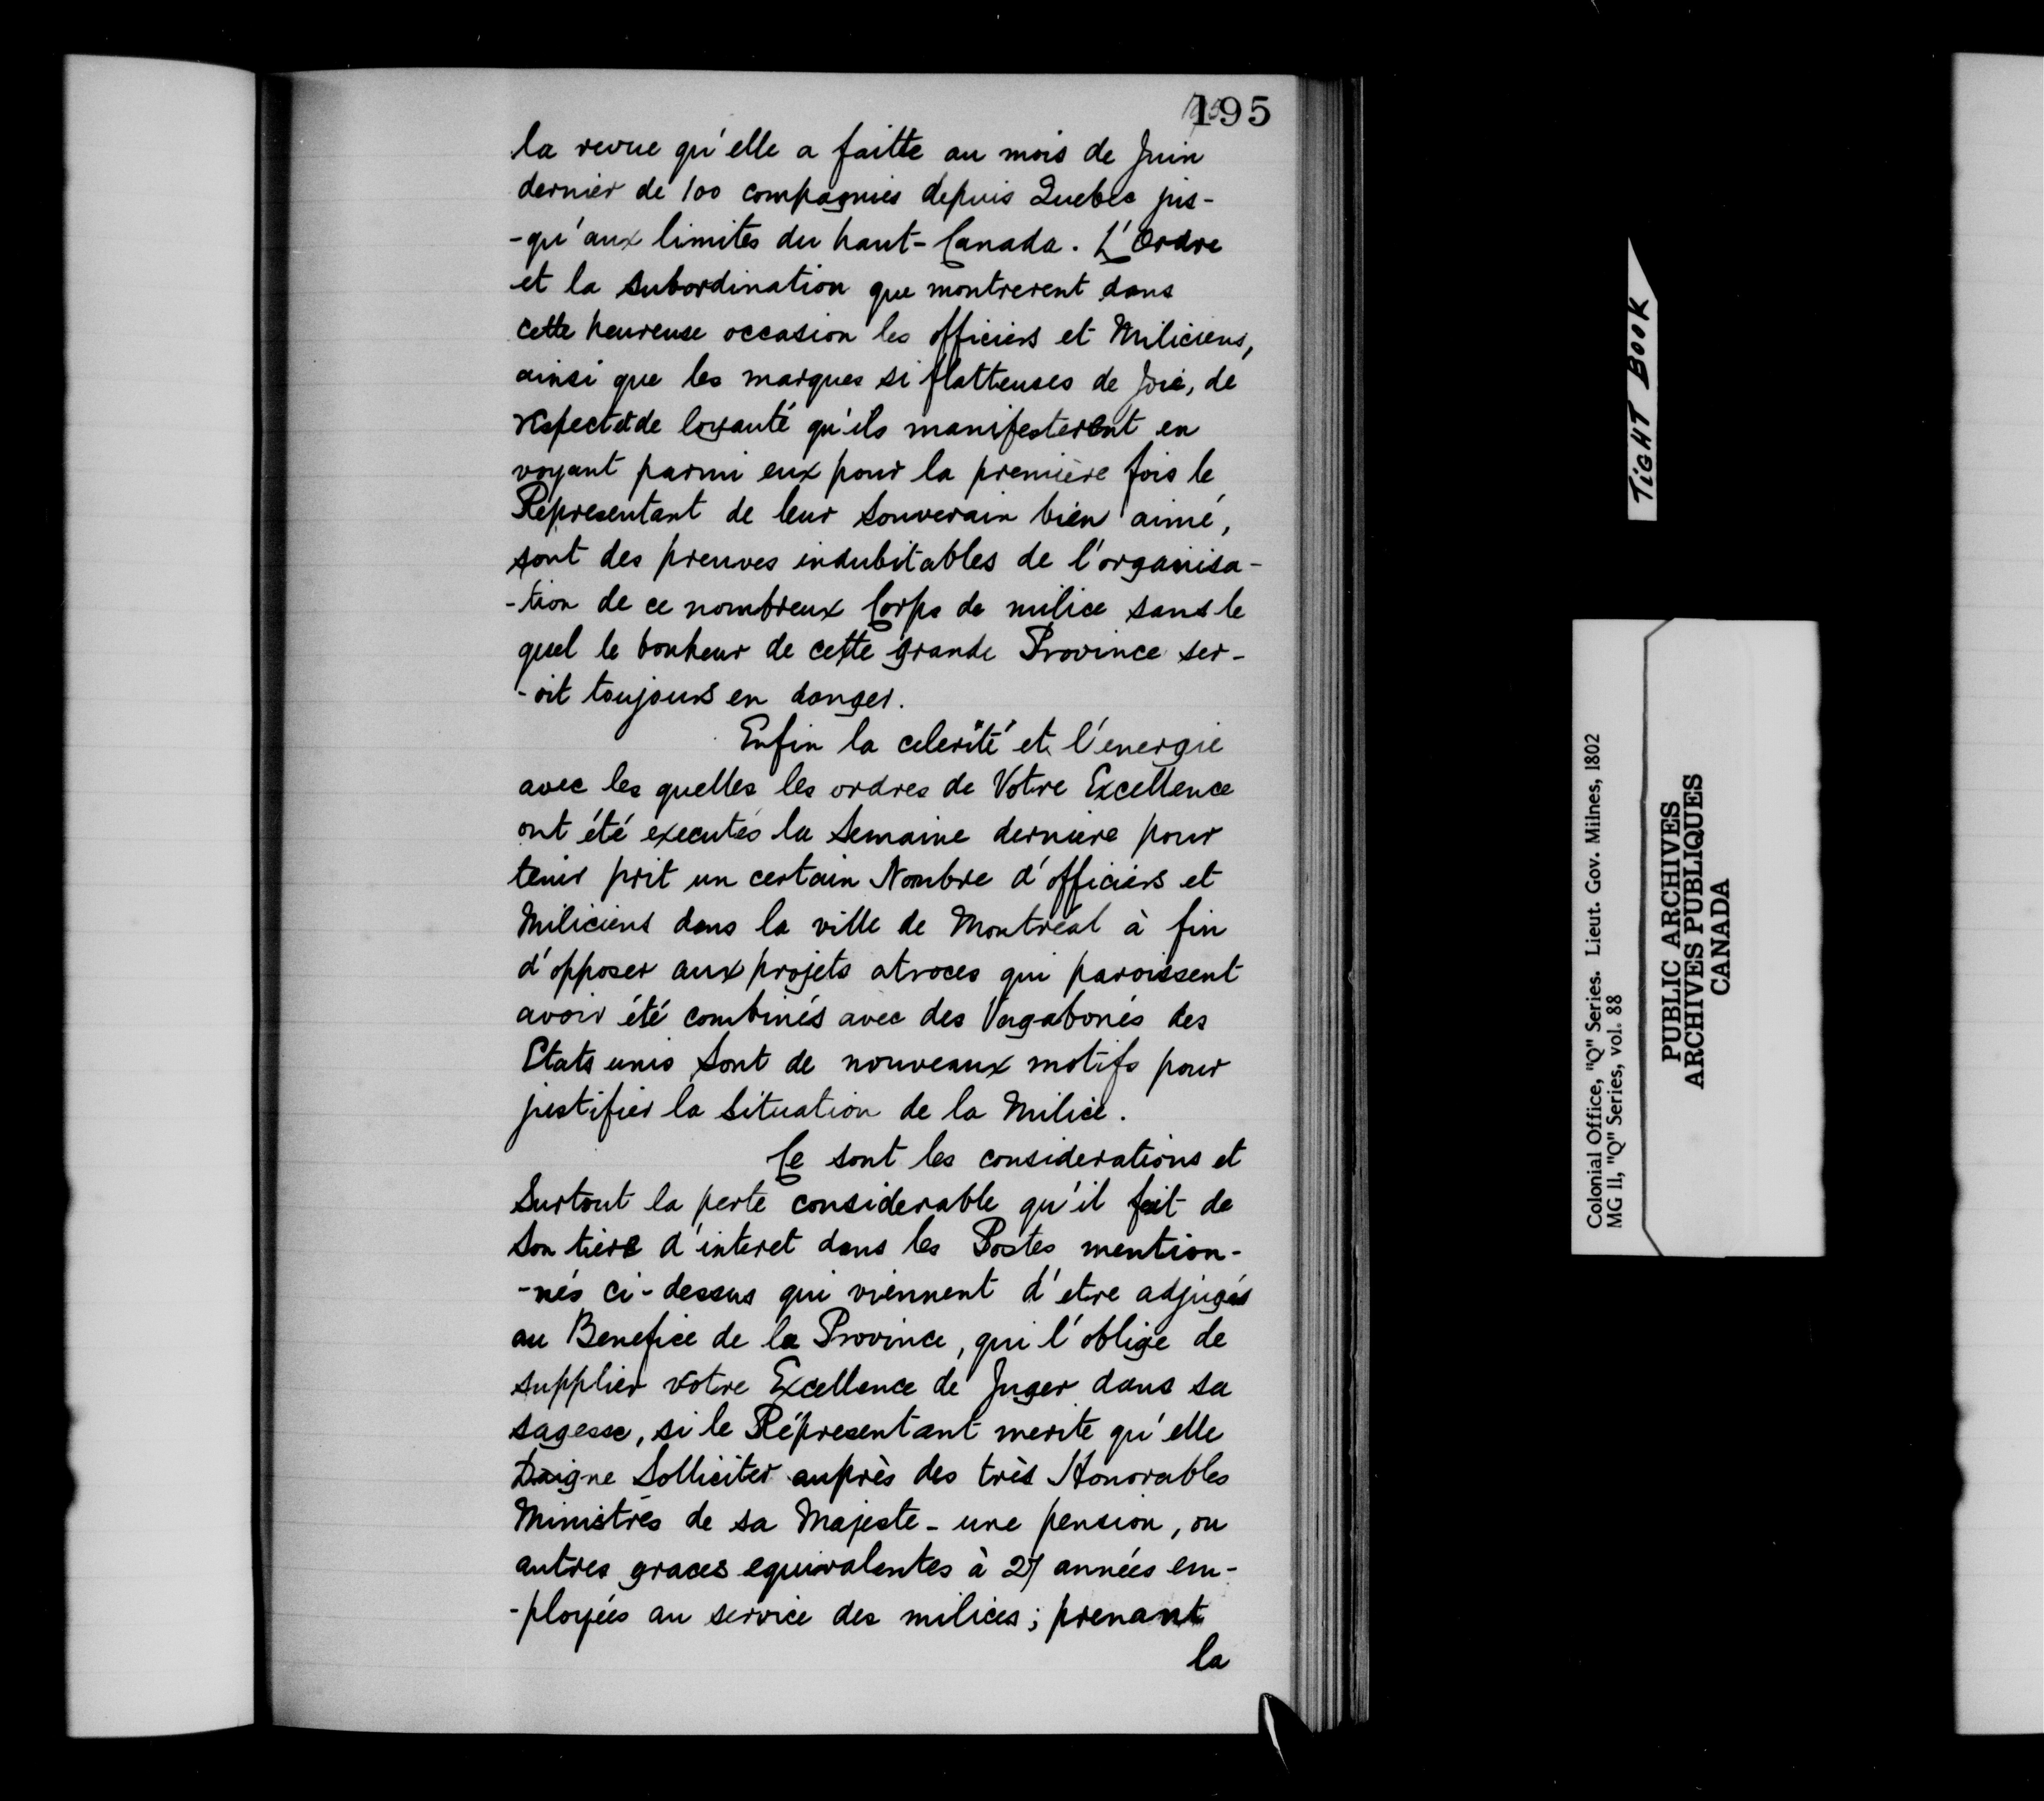 195
la revue qu'elle a faitte au mois de Juin
dernier de 100 compagnies depuis Quebec jus-
-qu'aux limites du haut-Canada. L'Ordre
et la subordination que montrerent dans
cette heureuse occasion les officiers et Miliciens,
ainsi que les marques si flatteuses de Joie, de
respect et de loyauté qu'ils manifesterent en
voyant parmi eux pour la première fois le
Représentant de leur Souverain bien aimé,
sont des preuves indubitables de l'organisa-
-tion de ce nombreux Corps de milice sans le
quel le bonheur de cette grande Province ser-
-oit toujours en danger.
Enfin la celerité et l'energie
avec les quelles les ordres de Votre Excellence
ont été executés la Semaine derniere pour
tenir prit un certain Nombre d'officiers et
Miliciens dans la ville de Montréal à fin
d'opposer aux projets atroces qui paroissent
avoir été combinés avec des Vagabonés des
Etats unis sont de nouveaux motifs pour
justifier la Situation de la Milice.
Ce sont les considerations et
Surtout la perte considerable qu'il fait de
Son tiers d'interet dans les Postes mention-
-nés ci-dessus qui viennent d'etre adjugés
au Benefice de la Province, qui l'oblige de
supplier votre Excellence de Juger dans sa
sagesse, si le Réprésentant merite qu'elle
Daigne Solliciter auprès des très Honorables
Ministres de sa Majeste - une pension, ou
autres graces equivalentes à 27 années em-
-ployées au service des milices; prenant
la
TIGHT BOOK
Colonial Office, "Q" Series. Lieut. Gov. Milnes, 1802
MG 11, "Q" Series, vol. 88
PUBLIC ARCHIVES
ARCHIVES PUBLIQUES
CANADA